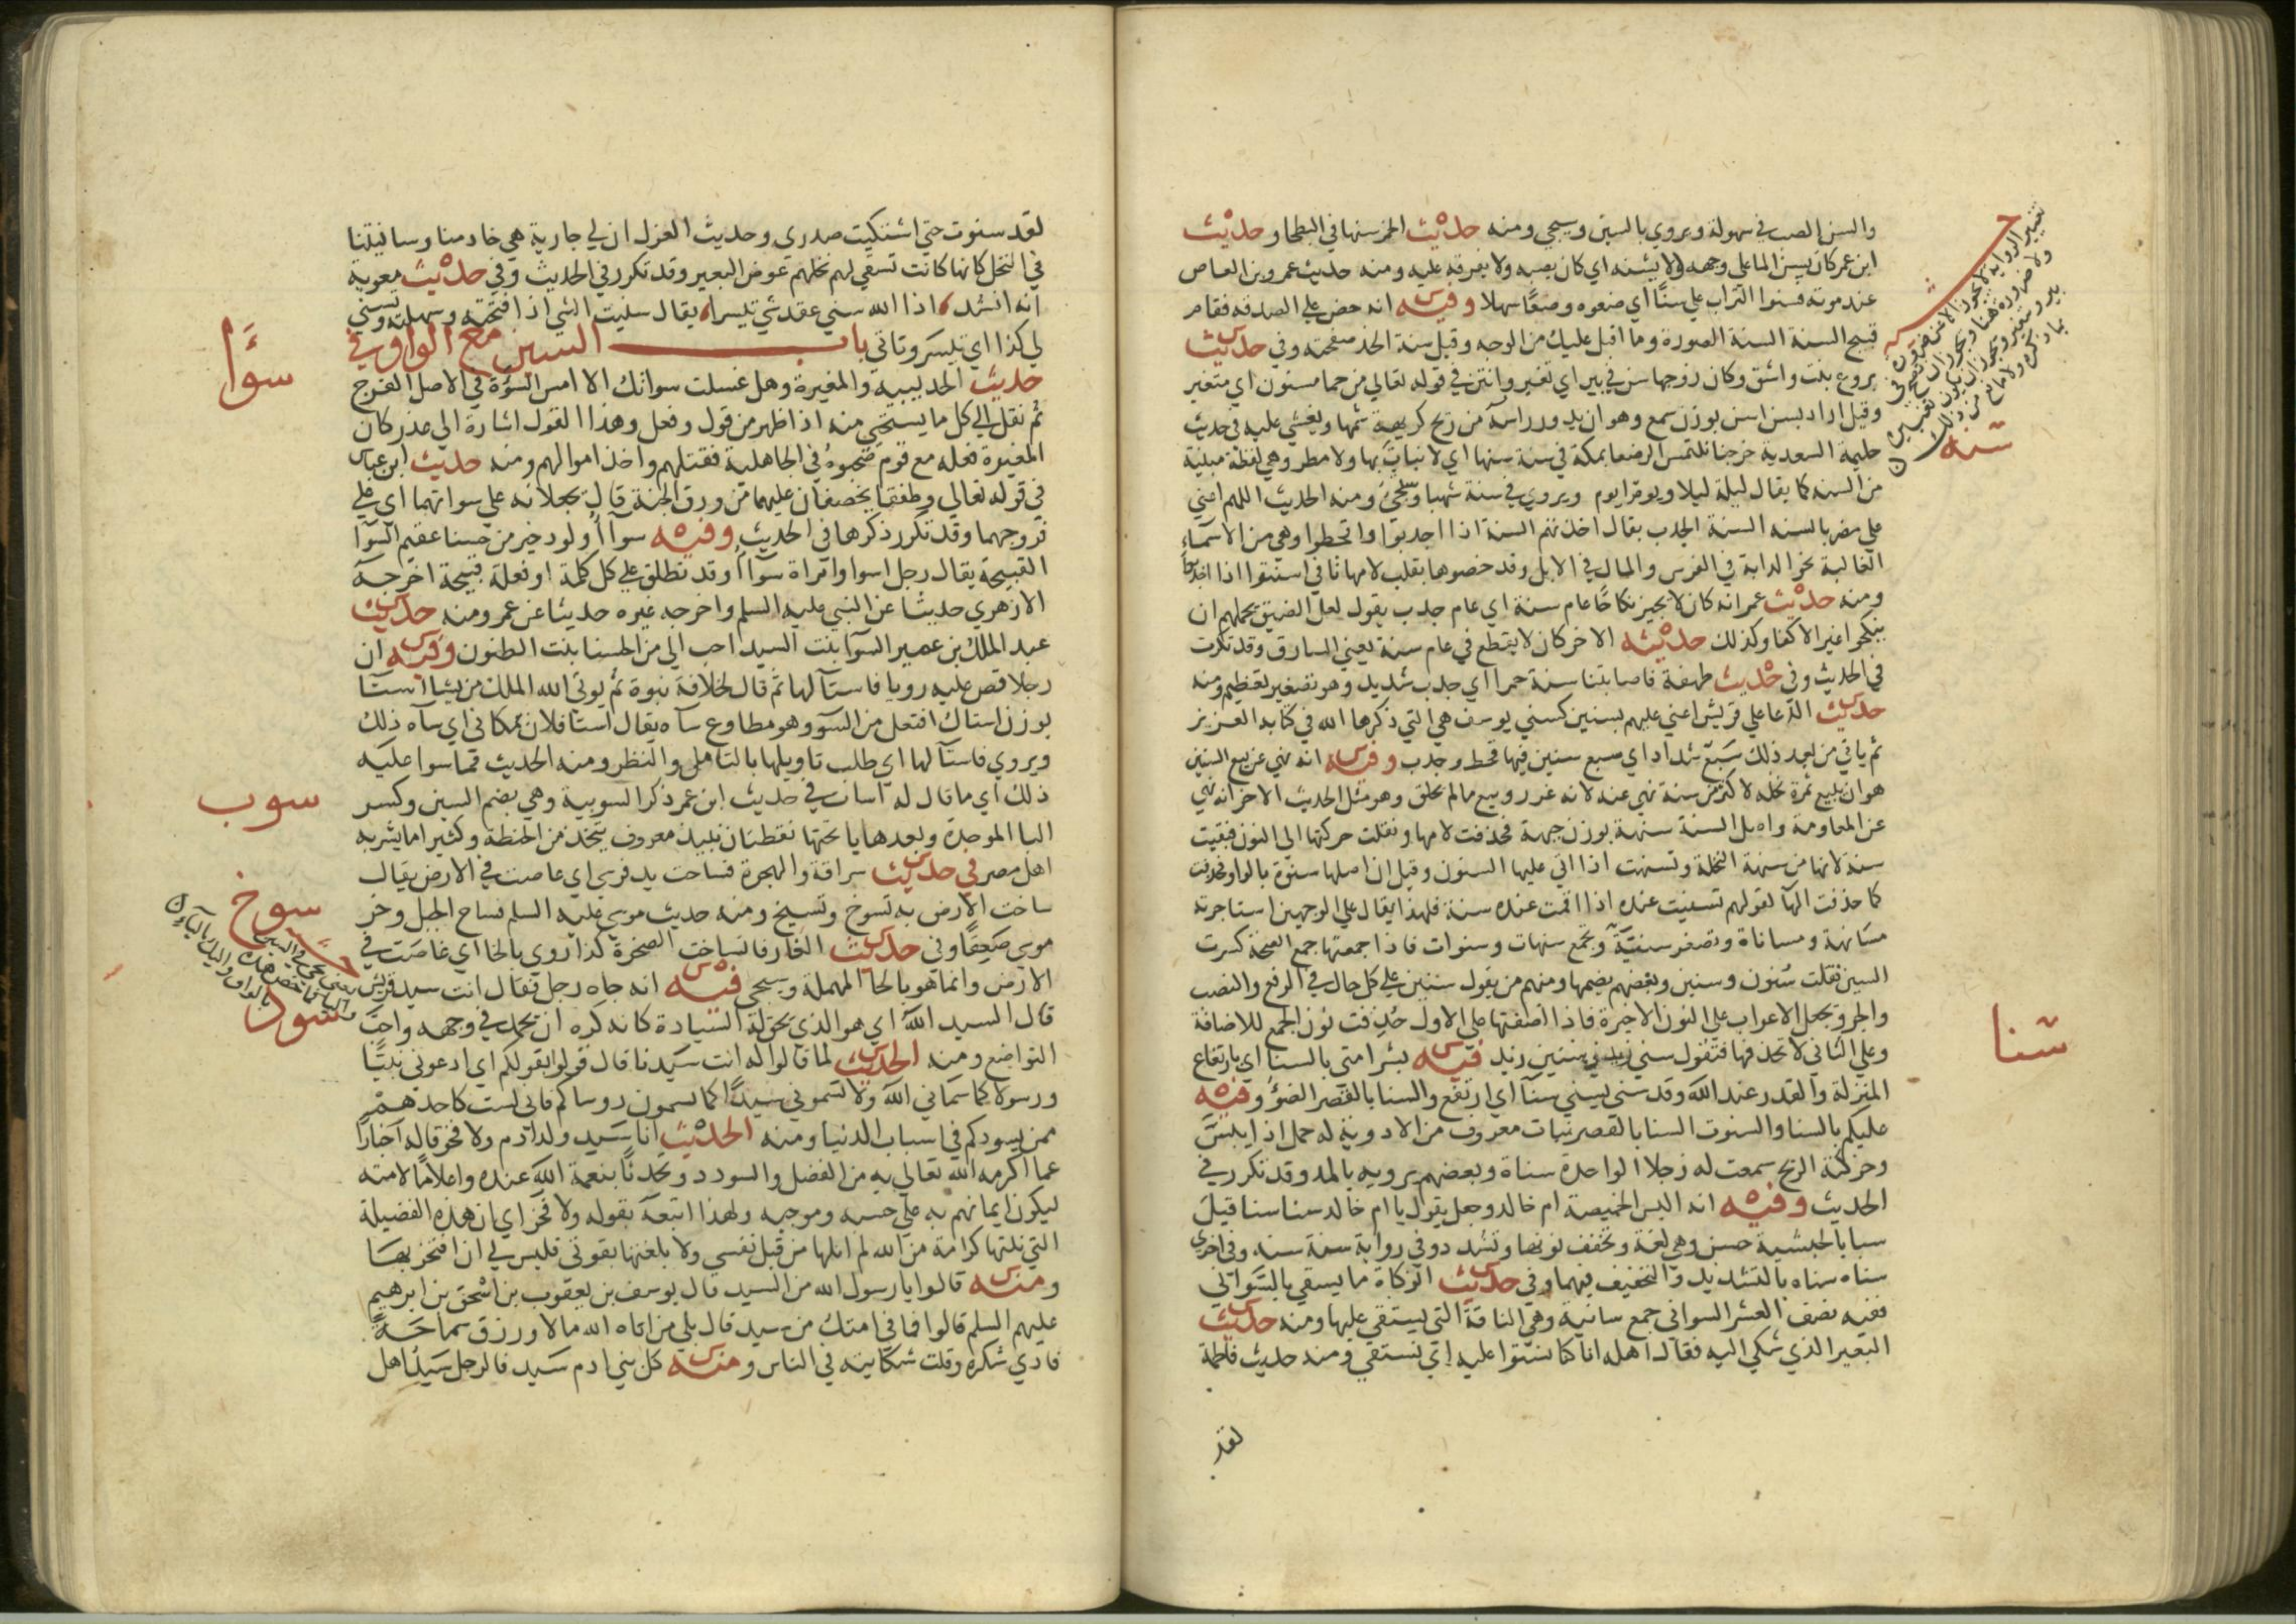 والسن الصب في سهولة ويروى بالشين وسيجي ومنه حديث الخمر سنها في البطحا وحديث
ابن عمر كان يسن الما على وجهه ولا يشنه اي كان يصبه ولا يفرقه عليه ومنه حديث عمرو بن العاص
عند موته فسنوا التراب علي سنًّا اي ضعوه وضعًا سهلا وفيه انه حض علي الصدقه فقام
قبيح السنة السنة الصورة وما اقبل عليك من الوجه وقيل سنة الخد صفحته وفي حديث
بروع بنت واشق وكان زوجها سن في بير اي تغير وانتن في قوله تعالي من حما مسنون اي متغير
وقيل اراد بسن اسن بوزن سمع وهو ان يدور راسه من ريح كريهة شمها ويغشي عليه في حديث
حليمة السعدية خرجنا نلتمس الرضعا بمكة في سنة سنها اي لا نبات بها ولا مطر وهي لفظة مبنية
من السنه كما يقال ليلة ليلا ويوم ايوم ويروى في سنة شهبا وسيجي ومنه الحديث اللهم اعني
علي مضر بالسنه السنة الجدب يقال اخذتهم السنة اذا اجدبوا واقحطوا وهي من الاسماء
الغالبة نحو الدابة في الفرس والمال في الابل وقد خصوها بقلب لامها تا في اسنتوا اذا اجدبوا
ومنه حديث عمر انه كان لا يجيز نكاحًا عام سنة اي عام جدب يقول لعل الضيق يحملهم ان
ينكحوا غير الاكفا وكذلك حديثه الاخر كان لا يقطع في عام سنة يعني السارق وقد تكررت
في الحديث وفي حديث طهفة فاصابتنا سنة حمرا اي جدب شديد وهو تصغير تعظيم ومنه
حديث الدعا علي قريش اعني عليهم بسنين كسني يوسف هي التي ذكرها الله في كتابه العزيز
ثم ياتي من بعد ذلك سبع شداد اي سبع سنين فيها قحط وجدب وفيه انه نهي عن بيع السنين
هو ان يبيع ثمرة نخله لاكثر من سنة نهي عنه لانه غرر وبيع ما لم يخلق وهو مثل الحديث الاخر انه نهي
عن المعاومة واصل السنة سنهة بوزن جبهة فحذفت لامها ونقلت حركتها الي النون فبقيت
سنة لانها من سنهة النخلة وتسنهت اذا اتي عليها السنون وقيل ان اصلها سنوة بالواو فحذفت
كما حذفت الهآ لقولهم تسنيت عنده اذا اقمت عنده سنة فلهذا يقال علي الوجهين استاجرته
مسانهة ومساناة وتصغر سنيّة وتجمع سنهات وسنوات فاذا جمعتها جمع الصحة كسرت
السين فقلت سنون وسنين وبعضهم يضمها ومنهم من يقول سنين علي كل حال في الرفع والنصب
والجر وتجعل الاعراب علي النون الاخيرة فاذا اضفتها علي الاول حُذِفت نون الجمع للاضافة
وعلي الثاني لا تحذفها فتقول سني زيد وسنين زيد فيه بشر امتي بالسنا اي بارتفاع
المنزلة والقدر عند الله وقد سنى يسني سنآ اي ارتفع والسنا بالقصر الضوُ وفيه
عليكم بالسنا والسنوت السنا بالقصر نبات معروف من الادوية له حمل اذا يبس
وحركته الريح سمعت له زجلا الواحدة سناة وبعضهم يرويه بالمد وقد تكرر في
الحديث وفيه انه البس الخميصة ام خالد وجعل يقول يا ام خالد سنا سنا قيل
سنا بالحبشية حسن وهي لغة وتخفف نونها وتشدد وفي رواية سنة سنه وفي اخرى
سناه سناه بالتشديد والتخفيف فيهما وفي حديث الزكاة ما يسقي بالسواني
ففيه نصف العشر السواني جمع سانية وهي الناقة التي يستقي عليها ومنه حديث
البعير الذي شكي اليه فقال اهله انا كنا نسنوا عليه اي نستقي ومنه حديث فاطمة
لقد
سنه
سنا
لقد سنوت حتي اشتكيت صدري وحديث العزل ان لي جارية هي خادمنا وسانيتنا
في النخل كانها كانت تسقي لهم نخلهم عوض البعير وقد تكرر في الحديث وفي حديث معوية
انه انشد، اذا الله سني عقد شي تيسرا، يقال سنيت الشي اذا فتحته وسهلته وتسني
لي كذا اي تيسر وتاتي باب السين مع الواو في
حديث الحديبية والمغيرة وهل غسلت سواتك الا امس السوة في الاصل الفرج
ثم نقل الي كل ما يستحيي منه اذا ظهر من قول وفعل وهذا القول اشارة الي غدر كان
المغيرة فعله مع قوم صحبوهُ في الجاهلية فقتلهم واخذ اموالهم ومنه حديث ابن عباس
في قوله تعالي وطفقا يخصفان عليهما من ورق الجنة قال يجعلانه علي سواتهما اي علي
فروجهما وقد تكرر ذكرها في الحديث وفيه سوآأُ ولود خير من حسنا عقيم السوآ
القبيحة يقال رجل اسوا وامراة سوآأُ وقد تطلق علي كل كلمة او فعلة قبيحة اخرجه
الازهري حديثا عن النبي عليه السلم واخرجه غيره حديثا عن عمر ومنه حديث
عبد الملك بن عمير السوآ بنت السيد احب الي من الحسنا بنت الظنون وفيه ان
رجلا قص عليه رويا فاستآ لها ثم قال خلافة نبوة ثم يوتي الله الملك من يشا استآ
بوزن استاك افتعل من السوو وهو مطاوع سآه يقال استا فلان بمكاني اي سآه ذلك
ويروى فاستآ لها اي طلب تاويلها بالتامل والنظر ومنه الحديث فما سوا عليه
ذلك اي ما قال له اسات في حديث ابن عمر ذكر السوبية وهي بضم السين وكسر
البا الموحدة وبعدها يا تحتها نقطتان نبيذ معروف يتخذ من الحنطة وكثيرا ما يشربه
اهل مصر في حديث سراقة والهجرة فساخت يد فرسي اي غاصت في الارض يقال
ساخت الارض به تسوخ وتسيخ ومنه حديث موسي عليه السلم فساخ الجبل وخر
موسي صعقًا وفي حديث الغار فانساخت الصخرة كذا روي بالخا اي غاصت في
الارض وانما هو بالحا المهملة وسيجي فيه انه جاه رجل فقال انت سيد قريش
قال السيد الله اي هو الذي يحق له السيادة كانه كره ان يحمد في وجهه واحب
التواضع ومنه الحديث لما قالوا له انت سيدنا قال قولوا بقولكم اي ادعوني نبيًّا
ورسولا كما سماني الله ولا تسموني سيدًا كما تسمون روساكم فاني لست كاحدهم
ممن يسودكم في اسباب الدنيا ومنه الحديث انا سيد ولد ادم ولا فخر قاله اخبارًا
عما اكرمه الله تعالي به من الفضل والسودد وتحدثًا بنعمة الله عنده واعلامًا لامته
ليكون ايمانهم به علي حسبه وموجبه ولهذا اتبعه بقوله ولا فخر اي ان هذه الفضيلة
التي نلتها كرامة من الله لم انلها من قبل نفسي ولا بلغتها بقوتي فليس لي ان افتخر بها
ومنه قالوا يا رسول الله من السيد قال يوسف بن يعقوب بن اسحق بن ابرهيم
عليهم السلم قالوا فما في امتك من سيد قال بلي من اتاه الله مالا ورزق سماحةً
فادي شكره وقلت شكايته في الناس ومنه كل بني ادم سيد فالرجل سيد اهل
سوَّا
سوب
سوخ
سود